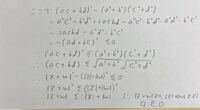 ここで (ac+bd)² - (a²+b²)(c²+d²)
= a²c²+b²d²+2acbd - a²c²-b²d²-a²d²-b²c²
= 2acbd - a²d² - b²c²
= -(ad+bc)² ≤0
∴ (ac+bd)² ≤ (a²+b²)(c²+d²)
(ac+bd) ≤ √a²+b² √c²+d²
∴ |z+w|² - (|z|+|w|)² ≤ 0
∴ |z+w|² ≤ (|z|+|w|)²
∴ |z+w| ≤ |z|+|w|
Q.E.D